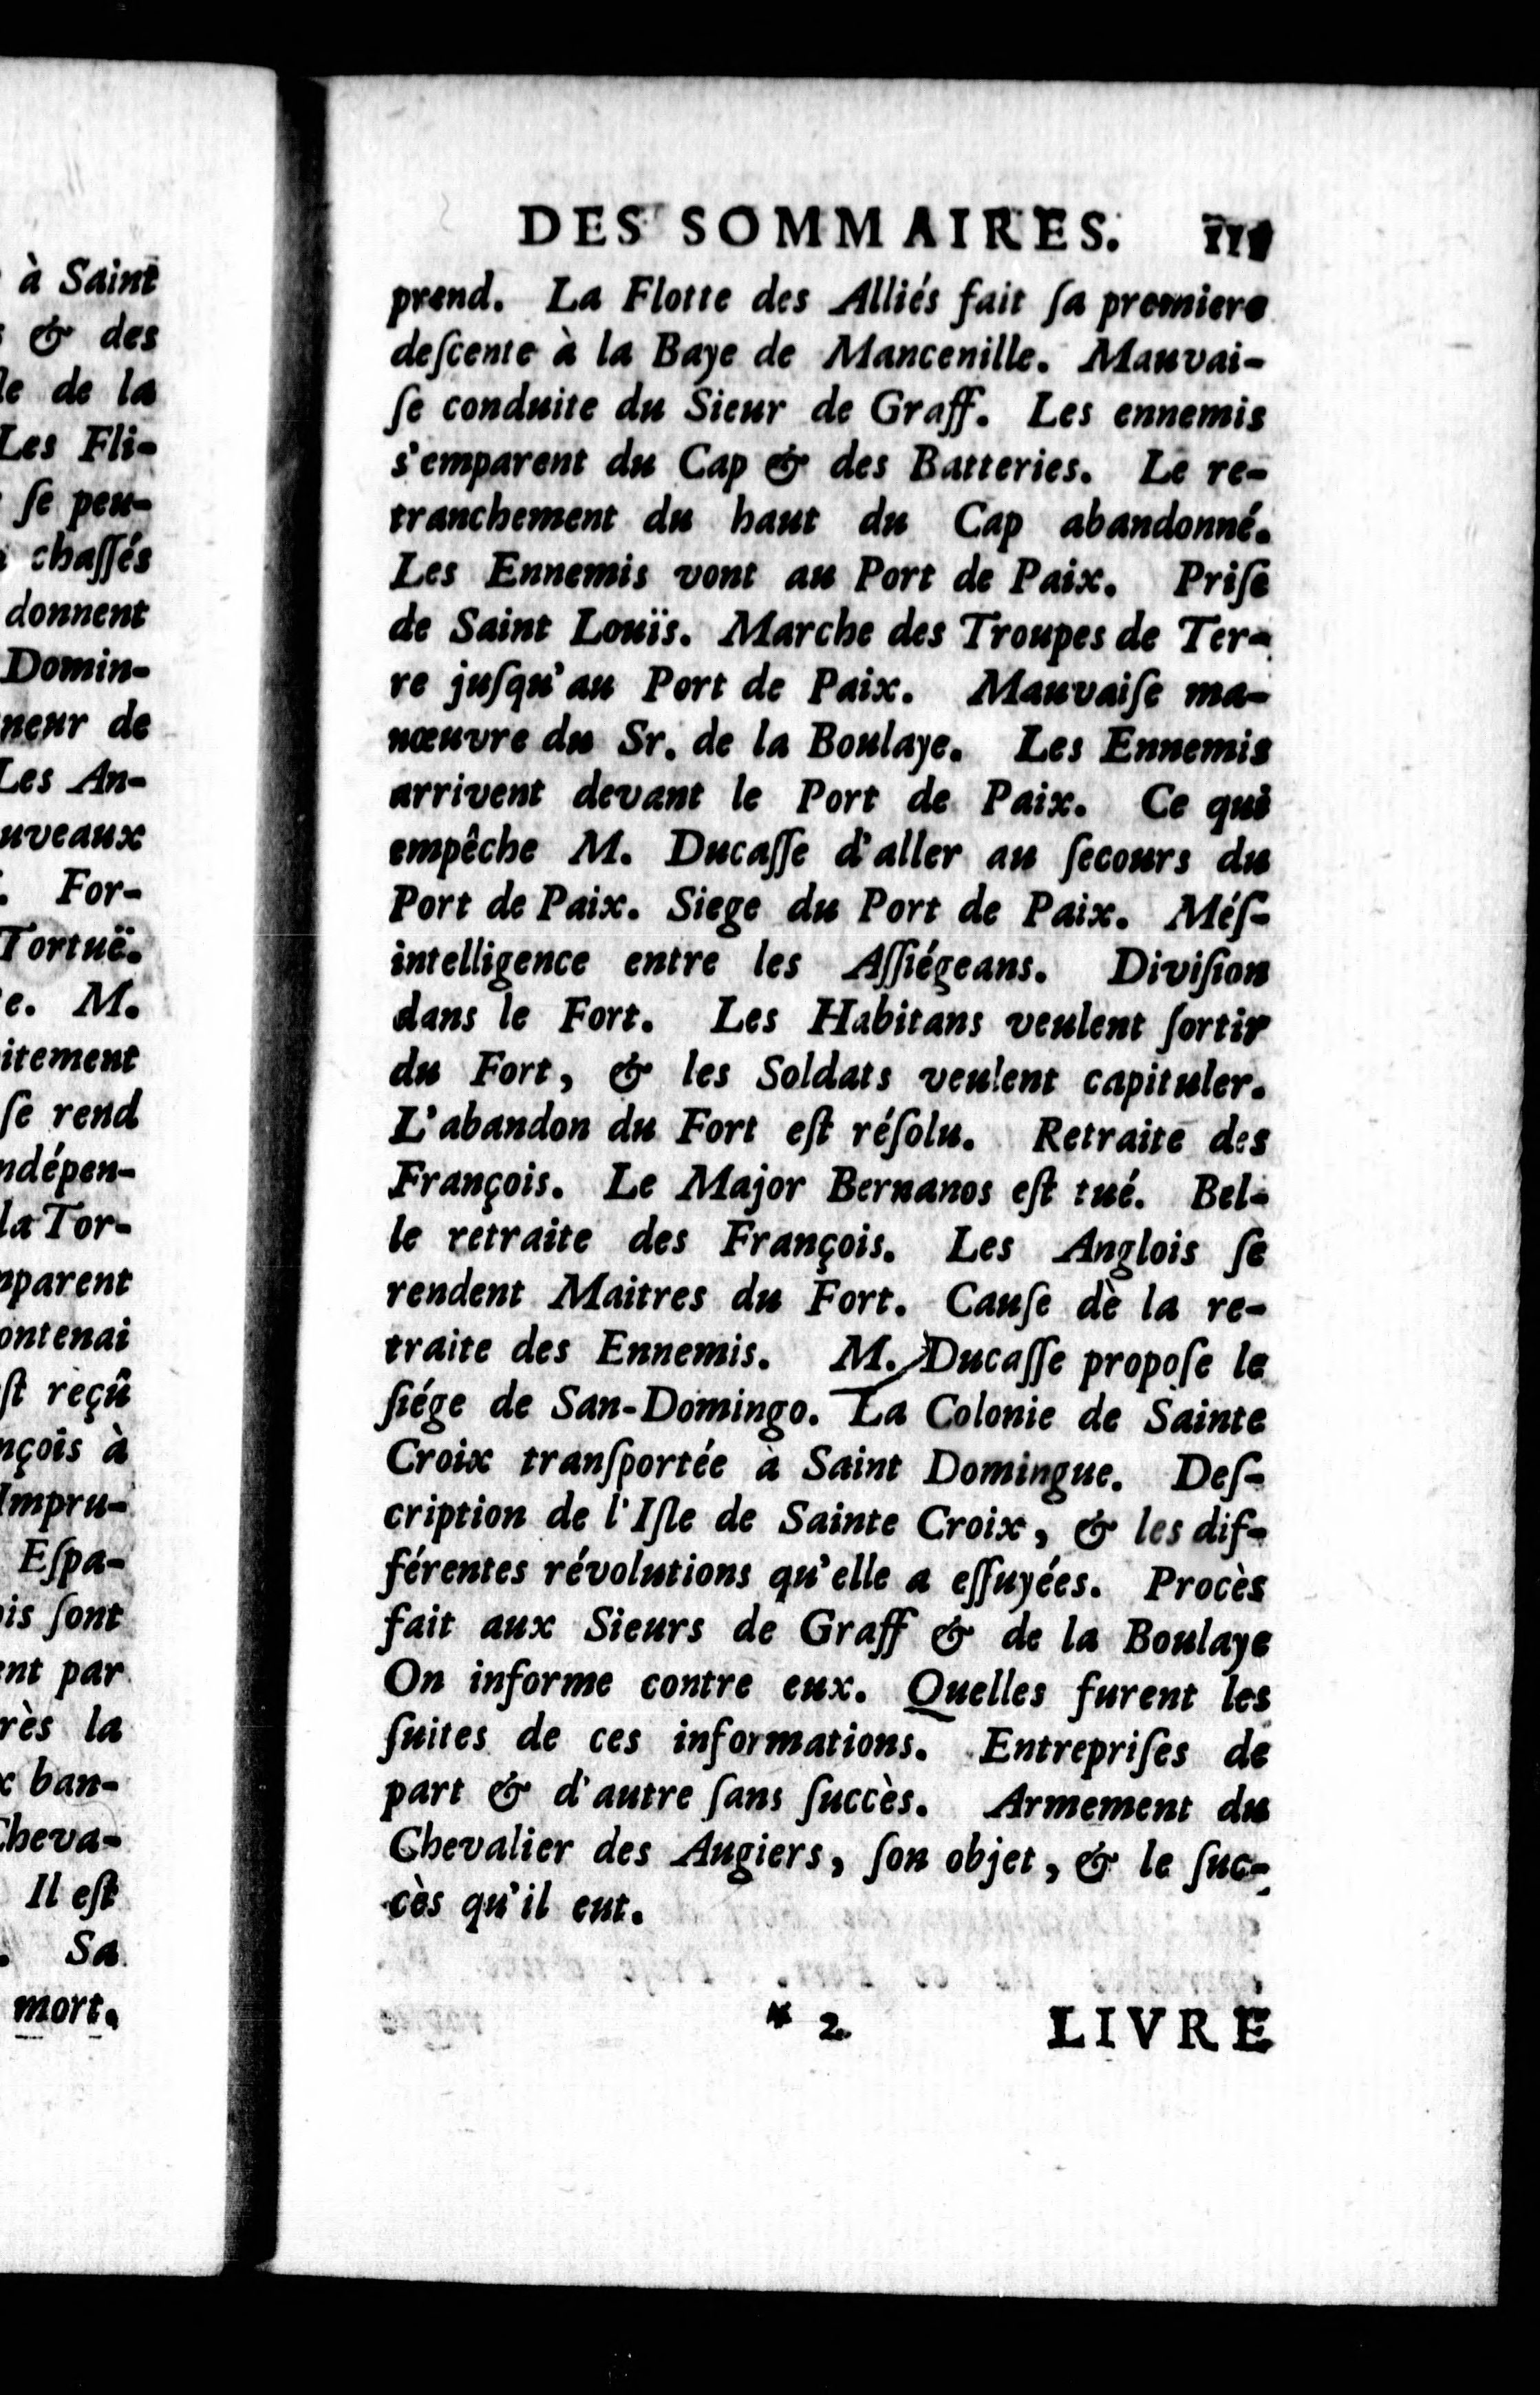 à Saint
& des
de la
Les Fli-
ſe peu-
chaſſés
donnent
Domin-
neur de
Les An-
uveaux
. For-
Tortuë.
e. M.
itement
ſe rend
ndépen-
la Tor-
mparent
ontenai
ſt reçû
nçois à
Impru-
Eſpa-
is ſont
ent par
rès la
x ban-
Cheva-
Il eſt
. Sa
mort.
DES SOMMAIRES. III
prend. La Flotte des Alliés fait ſa premiere
deſcente à la Baye de Mancenille. Mauvai-
ſe conduite du Sieur de Graff. Les ennemis
s'emparent du Cap & des Batteries. Le re-
tranchement du haut du Cap abandonné.
Les Ennemis vont au Port de Paix. Priſe
de Saint Louïs. Marche des Troupes de Ter-
re juſqu'au Port de Paix. Mauvaiſe ma-
nœuvre du Sr. de la Boulaye. Les Ennemis
arrivent devant le Port de Paix. Ce qui
empêche M. Ducaſſe d'aller au ſecours du
Port de Paix. Siege du Port de Paix. Méſ-
intelligence entre les Aſſiégeans. Diviſion
dans le Fort. Les Habitans veulent ſortir
du Fort, & les Soldats veulent capituler.
L'abandon du Fort eſt réſolu. Retraite des
François. Le Major Bernanos eſt tué. Bel-
le retraite des François. Les Anglois ſe
rendent Maitres du Fort. Cauſe dè la re-
traite des Ennemis. M. Ducaſſe propoſe le
ſiége de San-Domingo. La Colonie de Sainte
Croix tranſportée à Saint Domingue. Deſ-
cription de l'Iſle de Sainte Croix, & les dif-
férentes révolutions qu'elle a eſſuyées. Procès
fait aux Sieurs de Graff & de la Boulaye
On informe contre eux. Quelles furent les
ſuites de ces informations. Entrepriſes de
part & d'autre ſans ſuccès. Armement du
Chevalier des Augiers, ſon objet, & le ſuc-
cès qu'il eut.
* 2 LIVRE